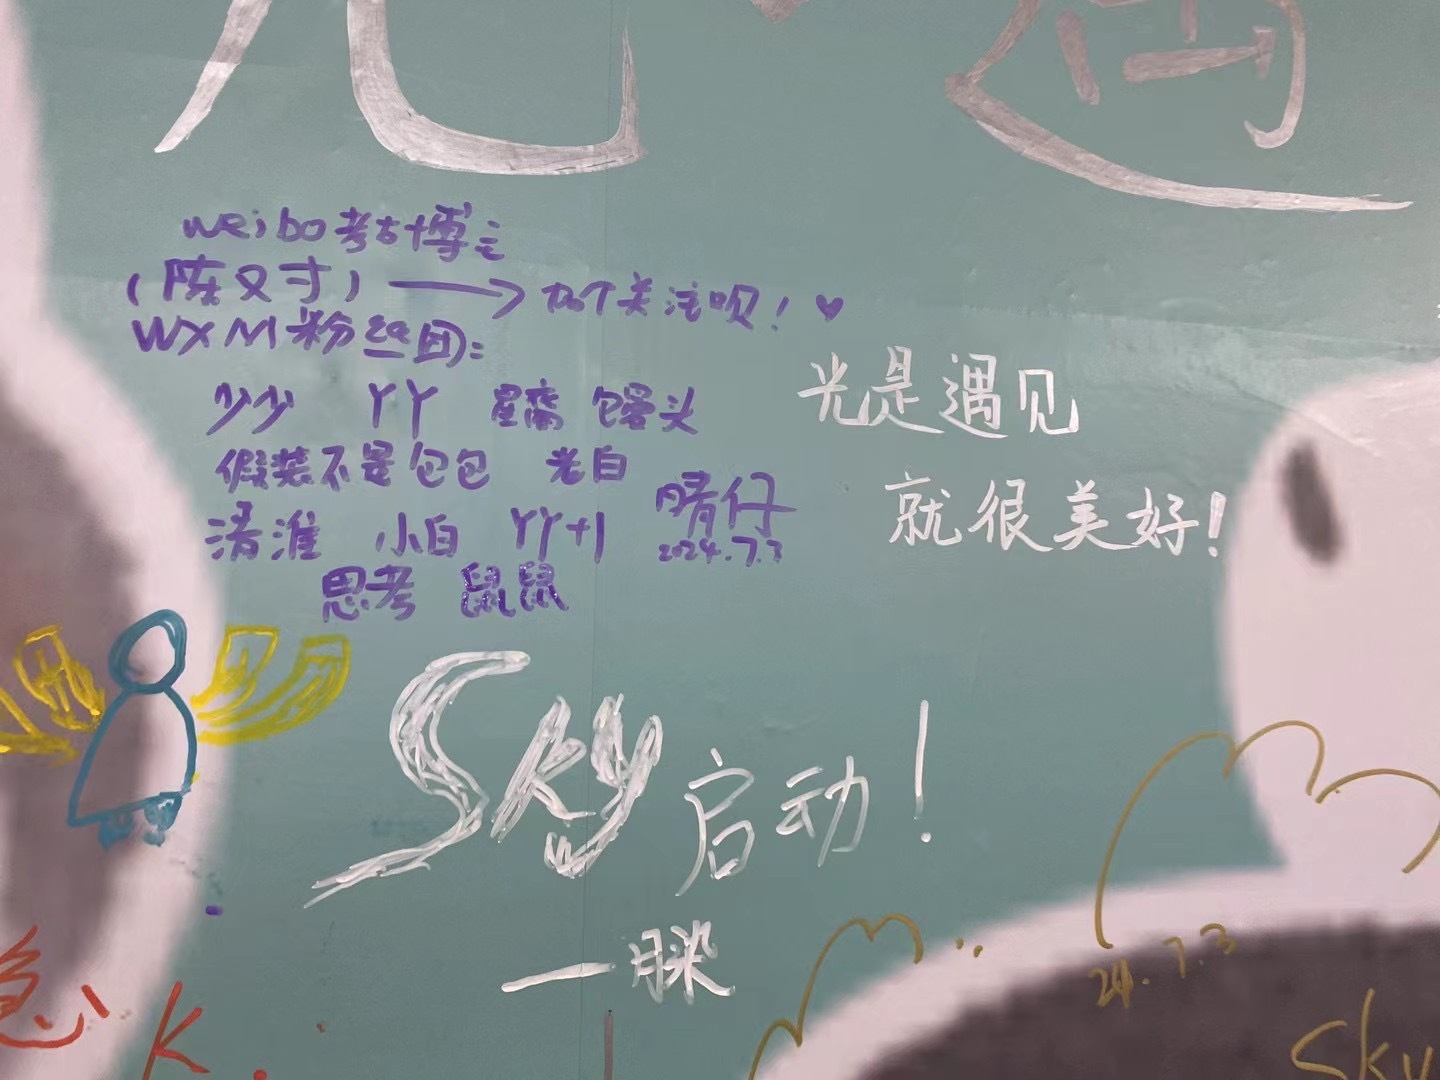 光·遇
weibo考古博主
(陈又寸)→加个关注呗!♥
WXM粉丝团:
少少 丫丫 星斋 包馒头
假装不是包包 光白
清淮 小白 丫丫+1 晴仔
2024.7.3
思考 鼠鼠
光是遇见
就很美好!
Sky启动!
一朡
24.7.3
Sky
急
K.